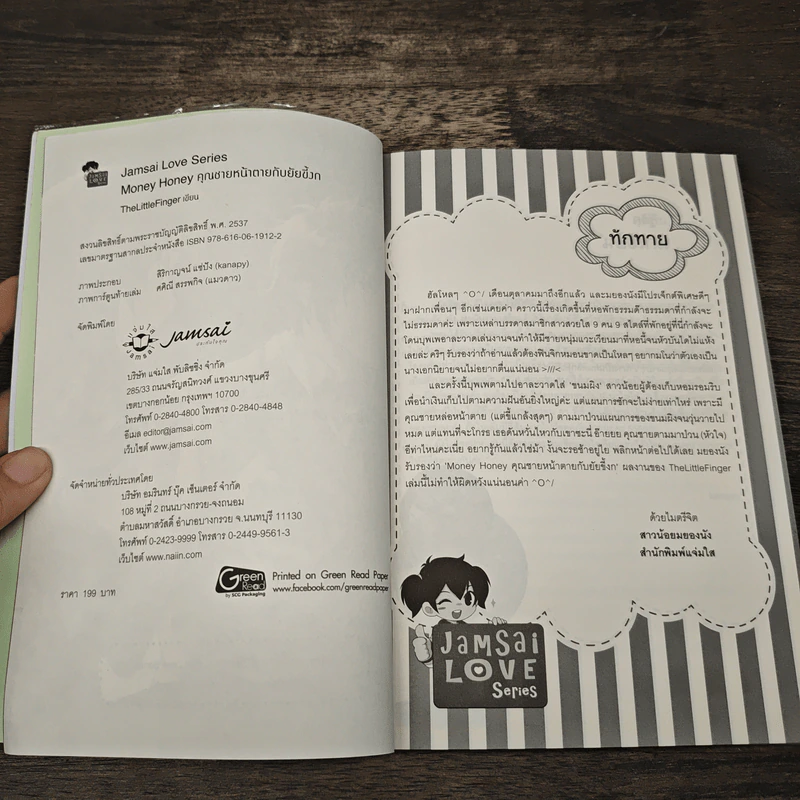 Jamsai Love Series
Money Honey คุณชายหน้าตายกับยัยขี้งก
TheLittleFinger เขียน
สงวนลิขสิทธิ์ตามพระราชบัญญัติลิขสิทธิ์ พ.ศ. 2537
เลขมาตรฐานสากลประจำหนังสือ ISBN 978-616-06-1912-2
ภาพประกอบ สิริกาญจน์ แซ่ปัง (kanapy)
ภาพการ์ตูนท้ายเล่ม ศศิณี สรรพกิจ (แมวดาว)
จัดพิมพ์โดย
แจ่มใส
Jamsai
jamsai
บริษัท แจ่มใส พับลิชชิ่ง จำกัด
285/33 ถนนจรัญสนิทวงศ์ แขวงบางขุนศรี
เขตบางกอกน้อย กรุงเทพฯ 10700
โทรศัพท์ 0-2840-4800 โทรสาร 0-2840-4848
อีเมล editor@jamsai.com
เว็บไซต์ www.jamsai.com
จัดจำหน่ายทั่วประเทศโดย
บริษัท อมรินทร์ บุ๊ค เซ็นเตอร์ จำกัด
108 หมู่ที่ 2 ถนนบางกรวย-จงถนอม
ตำบลมหาสวัสดิ์ อำเภอบางกรวย จ.นนทบุรี 11130
โทรศัพท์ 0-2423-9999 โทรสาร 0-2449-9561-3
เว็บไซต์ www.naiin.com
Green
Read
by SCG Packaging
Printed on Green Read Paper
www.facebook.com/greenreadpaper
ราคา 199 บาท
ทักทาย
ฮัลโหลๆ ^O^/ เดือนตุลาคมมาถึงอีกแล้ว และมยองนังมีโปรเจ็กต์พิเศษดีๆ
มาฝากเพื่อนๆ อีกเช่นเคยค่า คราวนี้เรื่องเกิดขึ้นที่หอพักธรรมด๊าธรรมดาที่กำลังจะ
ไม่ธรรมดาค่ะ เพราะเหล่าบรรดาสมาชิกสาวสวยใส 9 คน 9 สไตล์ที่พักอยู่ที่นี่กำลังจะ
โดนบุพเพอาละวาดเล่นงานจนทำให้มีชายหนุ่มแวะเวียนมาที่หอนี้จนหัวบันไดไม่แห้ง
เลยล่ะ คริๆ รับรองว่าถ้าอ่านแล้วต้องฟินจิกหมอนขาดเป็นโหลๆ อยากมโนว่าตัวเองเป็น
นางเอกนิยายจนไม่อยากตื่นแน่นอน >///<
และครั้งนี้บุพเพตามไปอาละวาดใส่ 'ขนมผิง' สาวน้อยผู้ต้องเก็บหอมรอมริบ
เพื่อนำเงินเก็บไปตามความฝันอันยิ่งใหญ่ค่ะ แต่แผนการชักจะไม่ง่ายเท่าไหร่ เพราะมี
คุณชายหล่อหน้าตาย (แต่ขี้แกล้งสุดๆ) ตามมาป่วนแผนการของขนมผิงจนวุ่นวายไป
หมด แต่แทนที่จะโกรธ เธอดันหวั่นไหวกับเขาซะนี่ อ๊ายยย คุณชายตามมาป่วน (หัวใจ)
อีท่าไหนคะเนี่ย อยากรู้กันแล้วใช่ม้า งั้นจะรอช้าอยู่ไย พลิกหน้าต่อไปได้เลย มยองนัง
รับรองว่า 'Money Honey คุณชายหน้าตายกับยัยขี้งก' ผลงานของ TheLittleFinger
เล่มนี้ไม่ทำให้ผิดหวังแน่นอนค่า ^O^/
ด้วยไมตรีจิต
สาวน้อยมยองนัง
สำนักพิมพ์แจ่มใส
JAMSAI
LOVE
Series